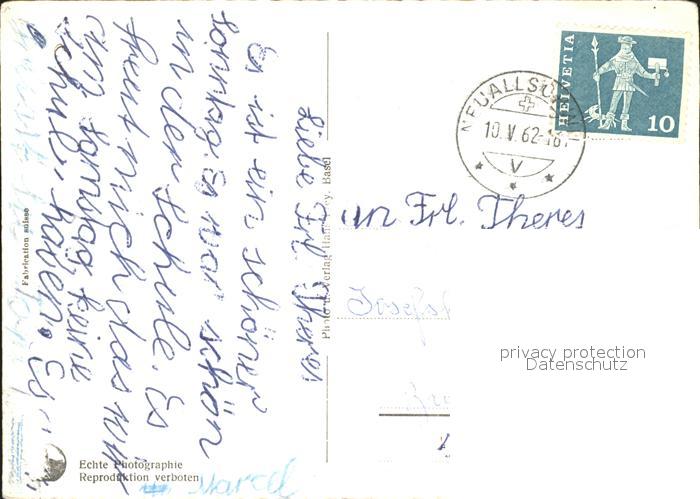 Liebe Frl. Theres
Es ist ein schöner
sonntag. Es war schön
in der schule. Es
freut mich das wir
am samstag keine
schule haben. Es
Marcel
an Frl. Theres
HELVETIA
10
NEUALLSCHWIL
10.V.62-16
V
Photo u. Verlag Basel
Fabrication suisse
Echte Photographie
Reproduktion verboten
privacy protection
Datenschutz